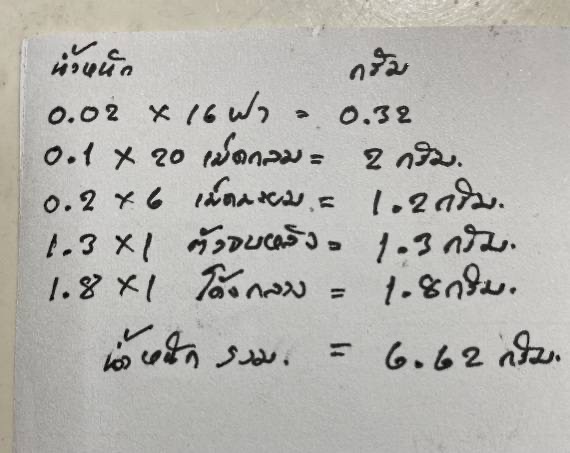 น้ำหนัก กรัม
0.02 × 16 ฝา = 0.32
0.1 × 20 เม็ดกลม = 2 กรัม.
0.2 × 6 เม็ดมะยม = 1.2 กรัม.
1.3 × 1 ตัวจบหลัง = 1.3 กรัม.
1.8 × 1 โค้งกลาง = 1.8 กรัม.
น้ำหนัก รวม. = 6.62 กรัม.